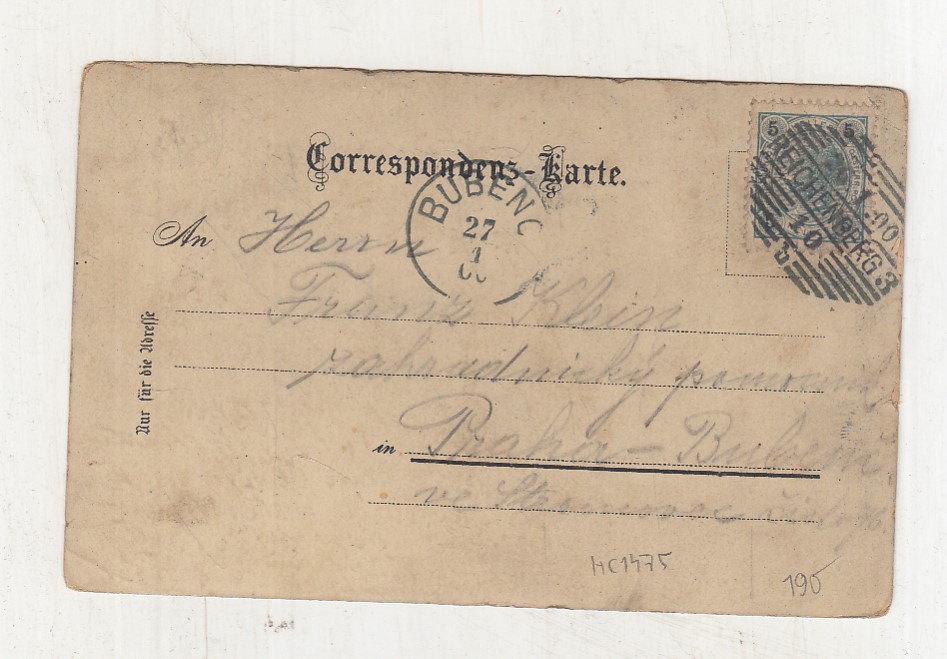 Correspondenz-Karte.
BUBENC
27
1
00
5 5
REICHENBERG 3
1.00
10
An Herrn
Franz Klein
zahradnický pomocník
in Praha - Bubeneč
ve Stromovce
Nur für die Adresse
HC1475
190